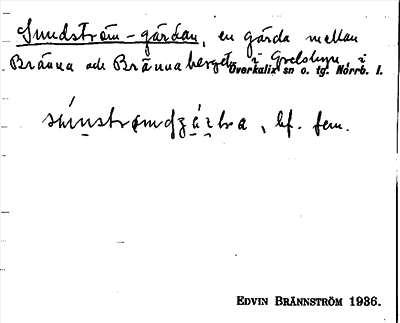 Sundström-gärdan, en gärda mellan
Bränna och Brännaberget i Grelsbyn, i
Överkalix sn o. tg. Norrb. l.
bf. fem.
EDVIN BRÄNNSTRÖM 1936.